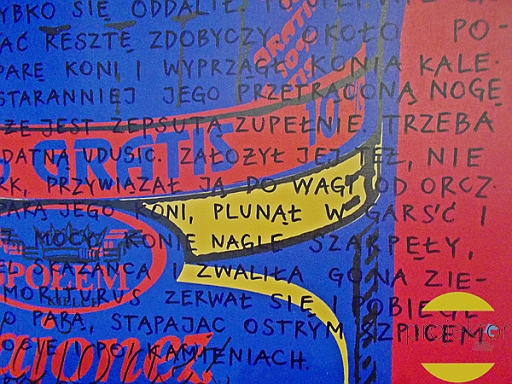 YBKO SIĘ ODDALIŁ
AĆ RESZTĘ ZDOBYCZY OKOŁO PO-
PARĘ KONI I WYPRZĄGŁ KONIA KALE-
STARANNIEJ JEGO PRZETRĄCONĄ NOGĘ
ŻE JEST ZEPSUTA ZUPEŁNIE. TRZEBA
DATNĄ UDUSIĆ. ZAŁOŻYŁ JEJ TEŻ, NIE
RK, PRZYWIĄZAŁ JĄ DO WAGI OD ORCZ-
PARĄ JEGO KONI, PLUNĄŁ W GARŚĆ I
Z MOCĄ. KONIE NAGLE SZARPĘŁY,
SKAZAŃCA I ZWALIŁA GO NA ZIE-
MORITURUS ZERWAŁ SIĘ I POBIEGŁ
O PARĄ, STĄPAJĄC OSTRYM SZPICEM
PO KAMIENIACH.
GRATIS
10%
GRATIS
10%
SPOŁEM
KIELCE